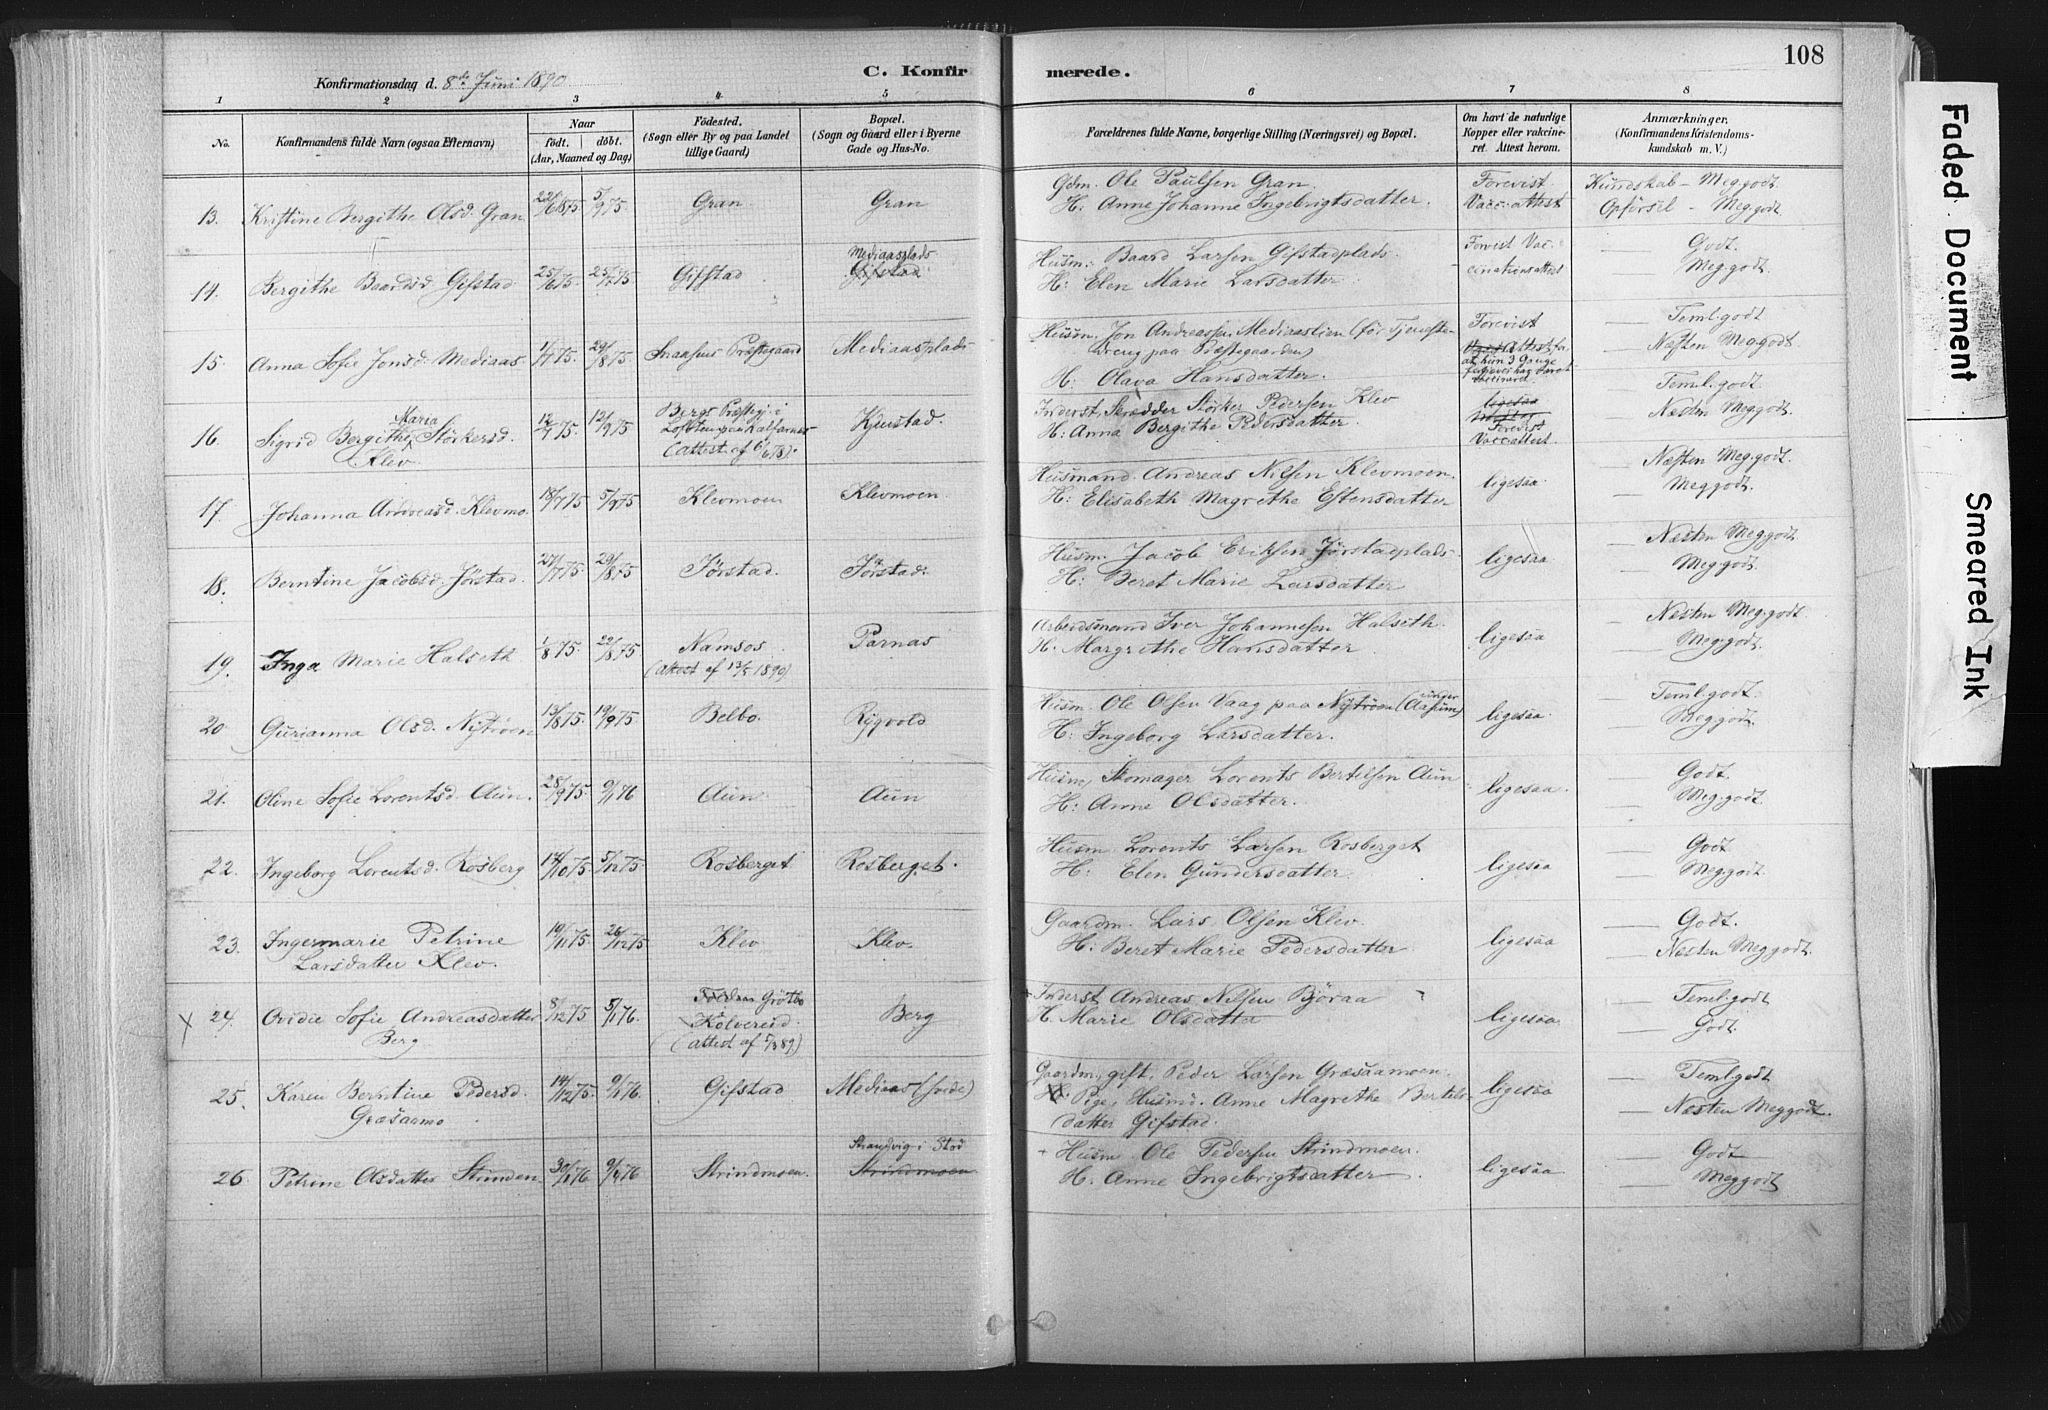 108
C. Konfirmerede.
Konfirmationsdag d. 8de Juni 1890
1 2 3 4 5 6 7 8
No.
Konfirmandens fulde Navn (ogsaa Efternavn)
Naar
født. døbt.
(Aar, Maaned og Dag)
Fødested.
(Sogn eller By og paa Landet
tillige Gaard)
Bopæl.
(Sogn og Gaard eller i Byerne
Gade og Hus-No.
Forældrenes fulde Navne, borgerlige Stilling (Næringsvei) og Bopæl.
Om havt de naturlige
Kopper eller vakcine-
ret. Attest herom.
Anmærkninger.
(Konfirmandens Kristendoms-
kundskab m. V.)
13. Kristine Bergithe Olsd. Gran 22/6 1875 5/9 75 Gran Gran
Gdm. Ole Paulsen Gran.
H: Anne Johanne Ingebrigtsdatter.
Forevist
Vacc: attest
Kundskab - Meg.godt.
Opførsel - Meg.godt.
14. Bergithe Baardsd. Gifstad 25/6 75 25/7 75 Gifstad Mediaasplads
Gifstad
Husm: Baard Larsen Gifstadplads.
H: Elen Marie Larsdatter.
Forvist Vac-
cinationsattest
— Godt.
— Meg.godt.
15. Anna Sofie Jonsd. Mediaas 1/7 75. 29/8 75 Snaasens Præstegaard Mediaasplads
Husm. Jon Andreassen Mediaastien (før Tjeneste-
dreng paa Præstegaarden)
H: Olava Hansdatter.
Forevist
— Teml.godt
— Næsten Meg.godt.
16. Sigrid Bergithe Maria Størkersd.
Klev 12/7 75. 12/9 75 Bergs Præstegj. i
(Attest af 6/6 78). Kjenstad.
Inderst, Skrædder Størker Pedersen Klev
H: Anna Bergithe Pedersdatter.
ligesaa
Forevist
Vacc: attest.
— Teml.godt.
— Næsten Meg.godt.
17. Johanna Andreasd. Klevmo. 18/7 75 5/9 75 Klevmoen Klevmoen.
Husmand. Andreas Nilsen Klevmoen.
H: Elisabeth Magrethe Estensdatter
ligesaa
— Næsten Meg.godt.
— Meg.godt.
18. Berntine Jacobsd. Jørstad. 27/7 75 29/8 75 Jørstad. Jørstad.
Husm. Jacob Eriksen Jørstadplads.
H: Beret Marie Larsdatter
ligesaa
— Næsten Meg.godt
— Meg.godt.
19. Inga Marie Halseth 1/8 75 22/8 75 Namsos
(Attest af 13/5 1890) Parnas
Arbeidsmand Iver Johannesen Halseth.
H. Margrethe Hansdatter.
ligesaa
— Næsten Meg.godt.
— Meg.godt.
20 Gurianna Olsd. Nytrøen 13/8 75. 19/9 75. Belbo. Rygvold
Husm. Ole Olsen Vaag paa Nytrøen
H: Ingeborg Larsdatter.
ligesaa.
— Teml.godt.
— Meg.godt.
21. Oline Sofie Lorentsd. Aun. 28/9 75. 9/1 76 Aun. Aun
Husm, Skomager Lorents Bertelsen Aun
H: Anne Olsdatter.
ligesaa.
— Godt.
— Meg.godt.
22. Ingeborg Lorentsd. Rosberg 14/10 75. 5/12 75. Rosberget Rosberget.
Husm Lorents Larsen Rosberget
H: Elen Gundersdatter
ligesaa
— Godt
— Meg.godt.
23. Ingermarie Petrine
Larsdatter Klev. 19/11 75. 26/12 75 Klev Klev.
Gaardm. Lars Olsen Klev.
H: Beret Marie Pedersdatter
ligesaa
— Godt.
— Næsten Meg.godt.
X 24. Ovidie Sofie Andreasdatter
Berg 8/12 75 5/11 76. Grøtbo
Kolvereid.
(Attest af 5/3 89) Berg
Inderst Andreas Nilsen Bjøraa
H. Marie Olsdatter
ligesaa
— Teml.godt
— Godt.
25. Karen Berntine Pedersd.
Græsaamo 14/12 75. 9/1 76. Gifstad Mediaas
Gaardm, gift. Peder Larsen Græsaamoen.
Pige, Husmd. Anne Magrethe Bertels-
datter Gifstad.
ligesaa
— Teml.godt
— Næsten Meg.godt.
26 Petrine Olsdatter Strinden 30/1 76 9/4 76 Strindmoen. Strandvig i Stod
Strindmoen
+ Husm Ole Pedersen Strindmoen.
H. Anne Ingebrigtsdatter.
ligesaa
— Godt
— Meg.godt
Faded Document
Smeared Ink